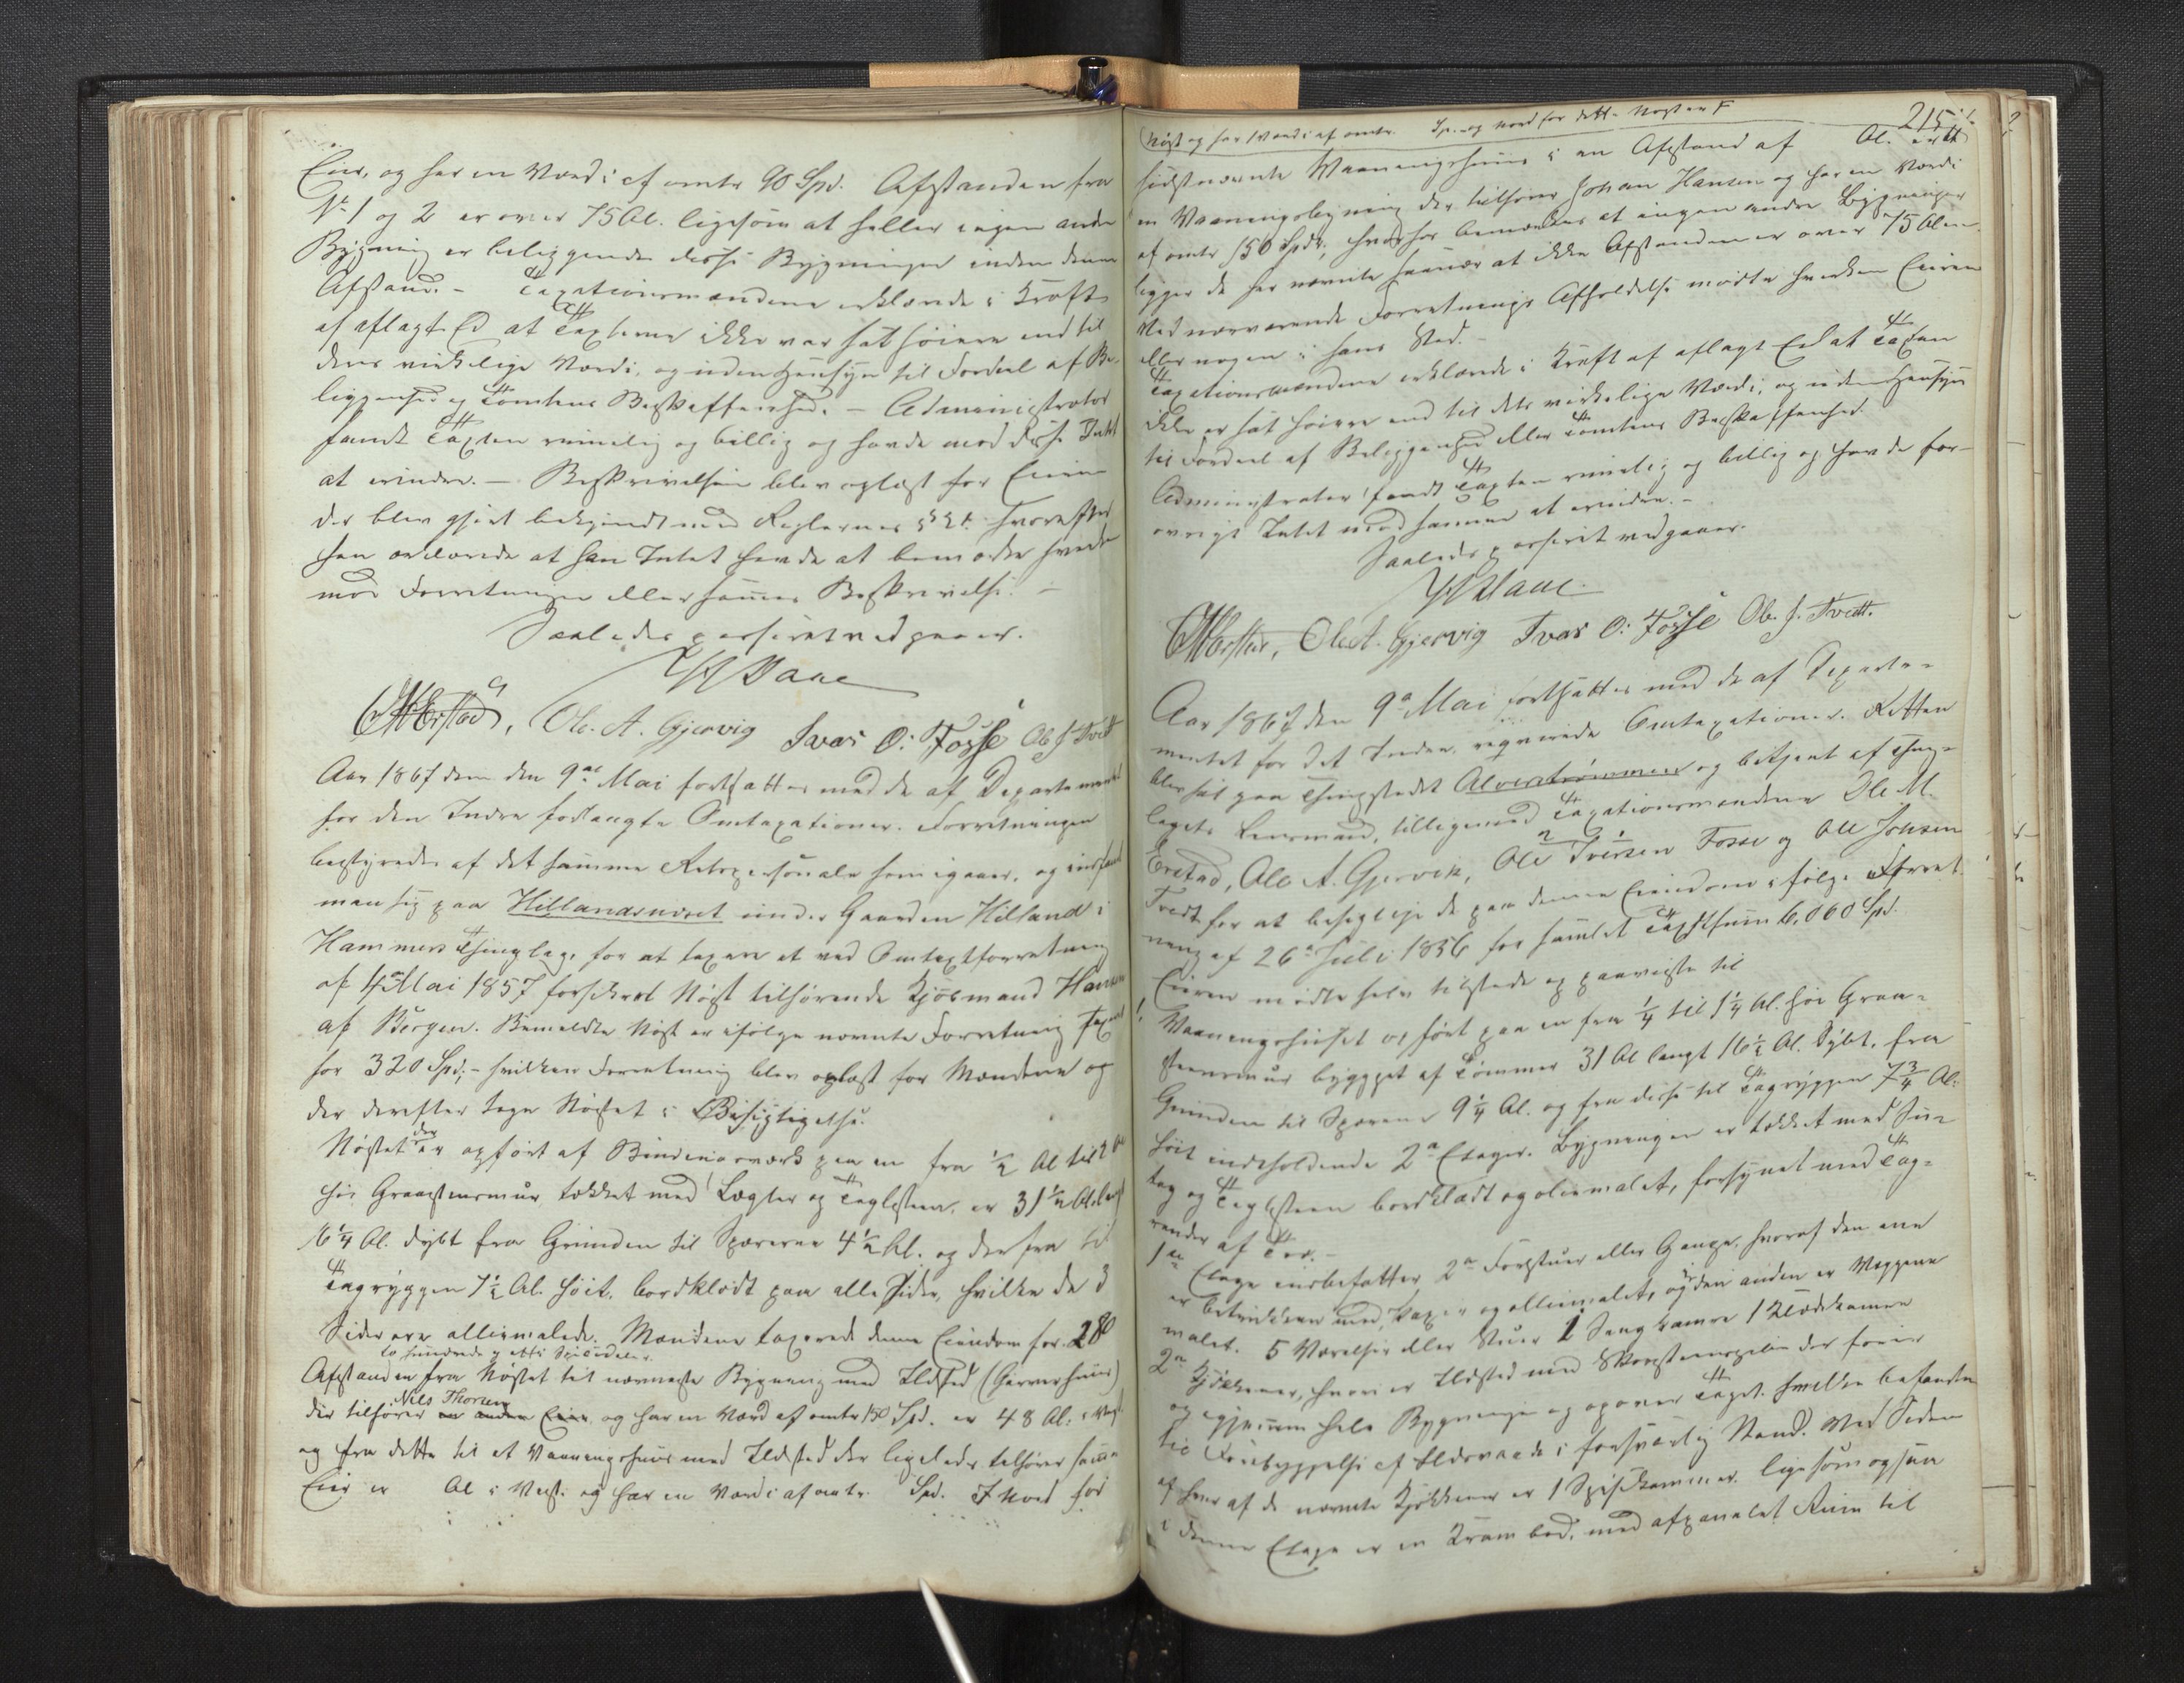 Eier, og har en Værdi af omtr 90 Spd. Afstanden fra
No 1 og 2 er over 75 Al. ligesom at heller ingen anden
Bygning er beliggende disse Bygninger inden denne
Afstand. - Taxationsmændene erklærede i Kraft
af aflagt Ed at Taxterne ikke var sat høiere end til
deres virkelige Værdi, og uden Hensyn til Fordeel af Be-
liggenhed og Tomtens Beskaffenhed. - Administrator
fandt Taxten rimelig og billig og havde mod disse Intet
at erindre. - Beskrivelsen blev oplæst for Eieren
der blev gjort bekjendt med Reglernes § 24. hvorefter
han erklærede at han Intet havde at bemærke hverken
mod Forretningen eller sammes Beskrivelse. -
Saaledes passeret vedgaaes.
Ole A. Gjervig Ivar O: Fosse Ole J. Tvedt
Aar 1867 den 9de Mai fortsattes med de af Departementet
for det Indre forlangte Omtaxationer. Forretningen
bestyredes af det samme Retspersonale som igaar, og indfandt
man sig paa Hillandsnæset under Gaarden Hilland i
Hammers Thinglag, for at taxere et ved Omtaxtforretning
af 4de Mai 1857 forsikret Nøst tilhørende Kjøbmand Hansen
af Bergen. Bemeldte Nøst er ifølge nævnte Forretning taxeret
for 320 Spd; - hvilken Forretning blev oplæst for Mændene og
der derefter toge Nøstet i Besigtigelse.
Nøstet der er opført af Bindingsværk paa en fra ½ Al til 2 Al
høi Graastensmur, tækket med Lægter og Taglsteen, er 31½ Al. langt
16¼ Al. dybt fra Grunden til Sparerne 4½ Al. og derfra til
Tagryggen 7½ Al. høit. bordklædt paa alle Sider, hvilke de 3
Sider ere olliemalede. Mændene taxerede denne Eiendom for 280
to hundrede og otti Speciedaler.
Afstanden fra Nøstet til nærmeste Bygning med Ildsted (Garverhuus)
der tilhører Nils Thorsen en anden Eier, og har en Værd af omtr 150 Spd. er 48 Al: i Vest
og fra dette til et Vaaningshuus med Ildsted der ligeledes tilhører samme
Eier er Al i Vest. og har en Værdi af omtr. Spd. I Nord for
215
(Nøst og har Værdi af omtr. Sp. og Nord for dette Nøst er F
sidstnævnte Vaaningshuus i en Afstand af Al. er et
en Vaaningsbygning der tilhører Johan Hansen og har en Værdi
af omtr 150 Spd, hvorhos bemærkes at ingen andre Bygninger
ligger de her nævnte saanær at ikke Afstanden er over 75 Alen.
Ved nærværende Forretnings Afholdelse mødte hverken Eieren
eller nogen i hans Sted. -
Taxationsmændene erklærede i Kraft af aflagt Ed at Taxten
ikke er sat høiere end til dets virkelige Værdi, og uden Hensyn
til Fordeel af Beliggenhed eller Tomtens Beskaffenhed.
Administrator fandt Taxten rimelig og billig og havde for-
øvrigt Intet mod samme at erindre. -
Saaledes passeret vedgaaes.
Ole A. Gjervig Ivar O: Fosse Ole J. Tvedt.
Aar 1867 den 9de Mai fortsattes med de af Departe-
mentet for det Indre, reqvirerede Omtaxationer. Retten
blev sat paa Thingstedet Alverstrømmen og betjent af Thing-
lagets Lensmand, tilligemed Taxationsmændene Ole M.
Erstad, Ole A. Gjervik, Ole Iversen Fosse og Ole Johsen
Tvedt for at besigtige de paa denne Eiendom ifølge Forret
ning af 26de Juli 1856 for samlet Taxtsum 6,060 Spd.
Eieren mødte selv tilstede og paaviste til
1 Vaaningshuset opført paa en fra ¼ til 1¼ Al. høi Graa-
steensmur bygget af Tømmer 31 Al langt 16½ Al. dybt, fra
Grunden til Sparene 9¼ Al. og fra disse til Tagryggen 7¾ Al.
høit indeholdende 2de Etager. Bygningen er tækket med Su-
tag og Taglsteen bordklædt og oliemalet, forsynet med Tag-
render af Træ. -
1ste Etage indbefatter 2de Forstuer eller Gange, hvoraf den ene
er betrukken med Papir og olliemalet, og i den anden er Væggene
malet. 5 Værelser eller Stuer 1 Sengkamre 1 Klædekamer
2de Kjøkkener, hvor er Ildsted med Skorsteenspiber der fører
op igjennem hele Bygningen og opover Taget. hvilke befandtes
til Forebyggelse af Ildsvaade i forsvarlig Stand. Ved Siden
af hver af de nævnte Kjøkkener er 1 Spisekammer. ligesom ogsaa
i denne Etage er en Krambod, med afpanelet Rum til